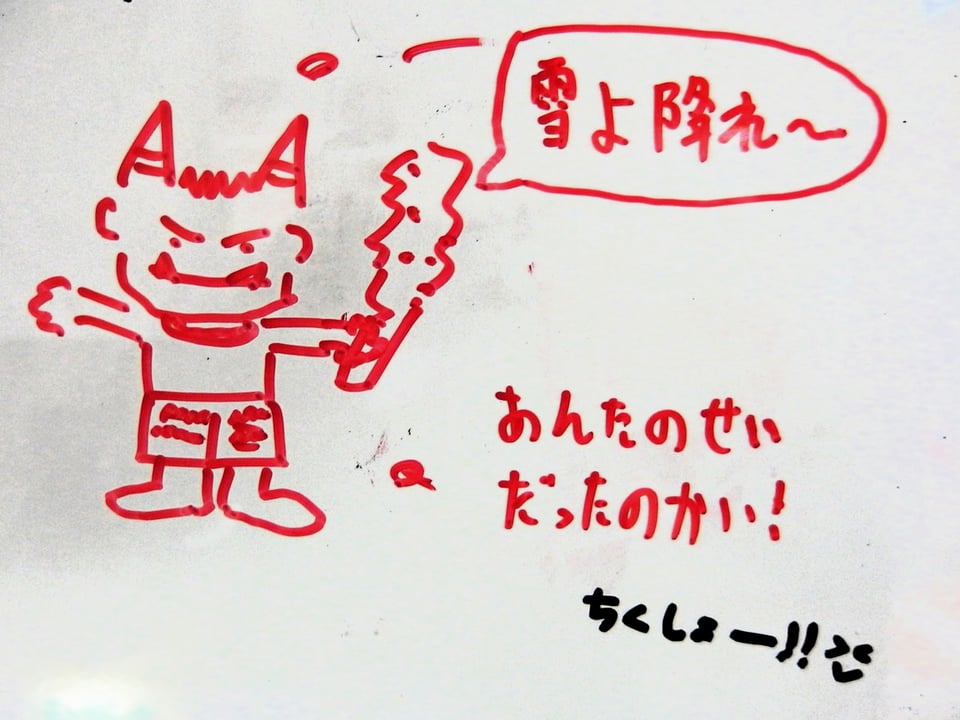 雪よ降れ～
あんたのせい
だったのかい!
ちくしょー!!